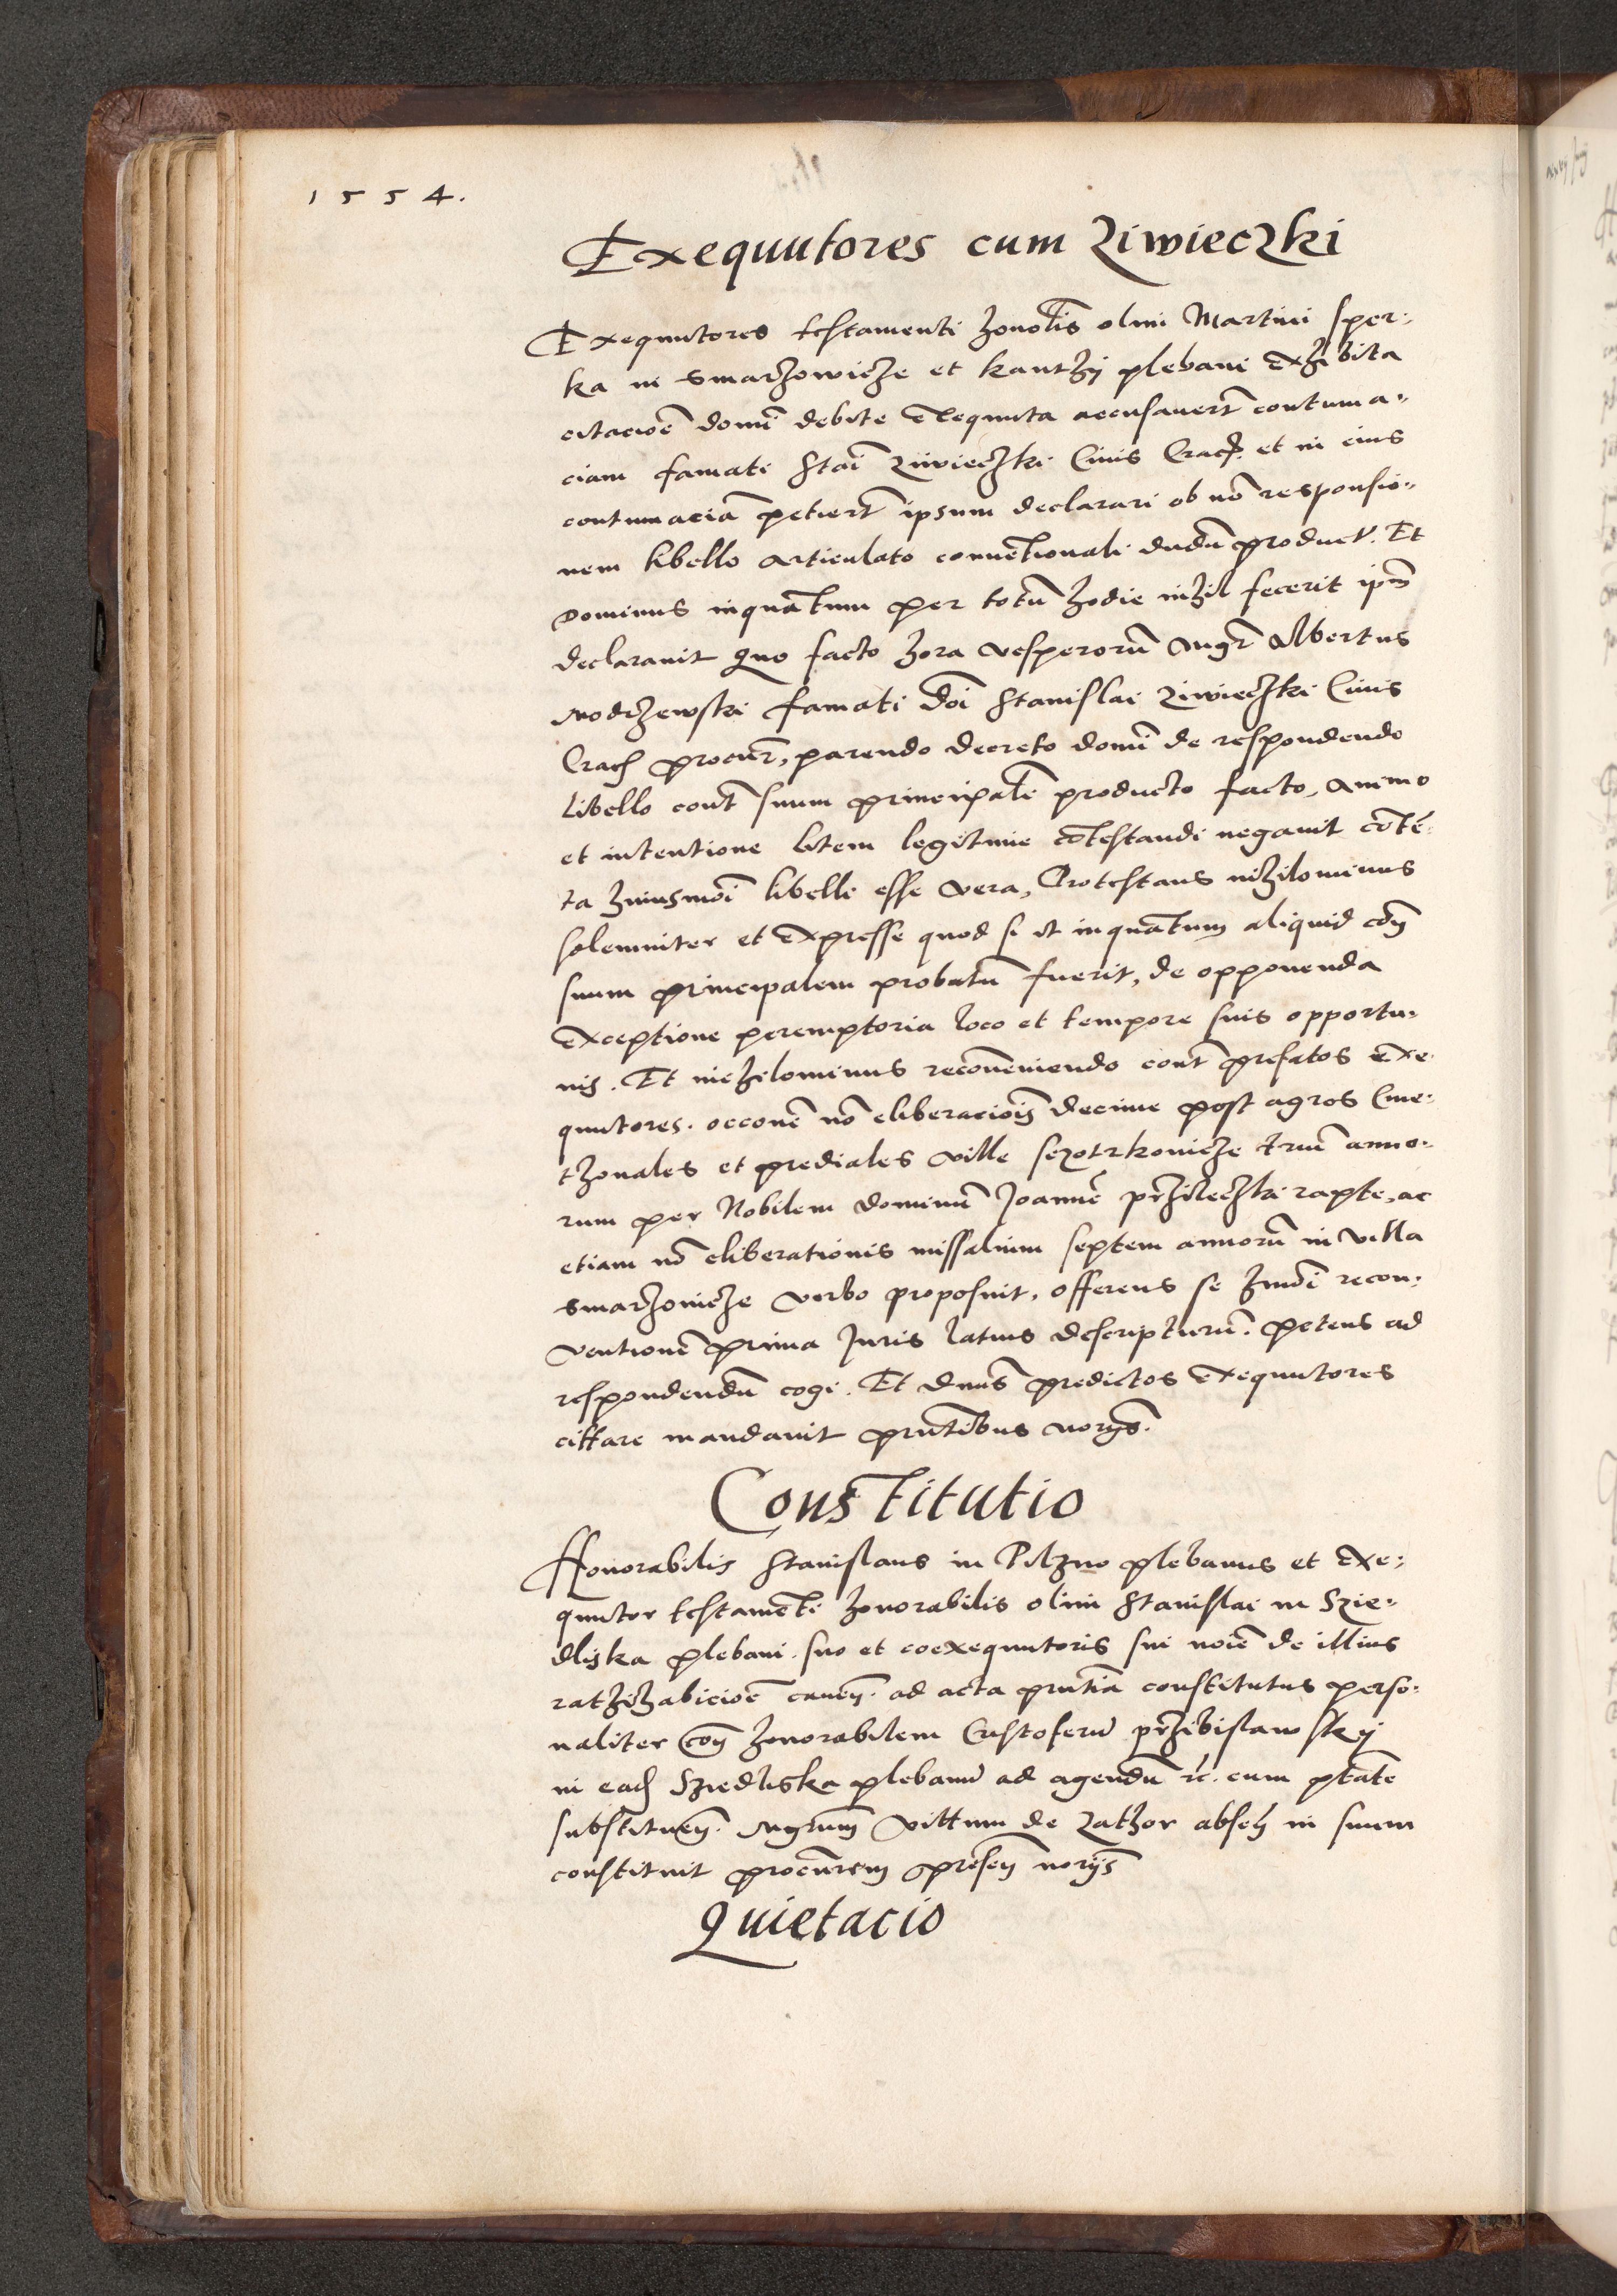 1554.
Exequutores cum Ziwieczki
Exequutores testamenti honolis olim Martini sper:
ka in Smarzowicze et kanthy plebani exhibita
citacioē domī debite exequuta accusauerūt contuma„
ciam famati Stai Ziwieczki Ciuis Crac. et in eius
contumaciā petierūt ipsum declarari ob nō responsio„
nem libello articulato conuētionali dudū product. Et
Dominus inquātum per totū hodie nihil fecerit ipm̄
declarauit Quo facto hora vesperorū Mgr Albertus
Modrzewski famati doī Stanislai Ziwieczki Ciuis
Crac procur, parendo decreto domī de respondendo
libello cont suum principalē producto facto, animo
et intentione litem legitime cōtestandi negauit cōtē:
ta huiusmōi libelli esse vera, Protestans nihilominus
solemniter et expresse quod si et inquātum aliquid cōn
suum principalem probatū fuerit, de opponenda
exceptione peremptoria loco et tempore suis opportu:
nis. Et nichilominus recōueniendo cont prefatos exe:
quutores. occōne nō eliberaciois decime post agros Cme:
thonales et prediales ville trium anno:
rum per Nobilem dominū Joannē przileczki rapte, ac
etiam nō eliberationis missalium septem annorū in villa
Smarzowicze verbo proposuit, offerens se hmōi recon:
ventionē prima Juris latius descripturū. petens ad
respondendū cogi. Et dnus predictos exequutores
cittare mandauit pntibus norys.
Constitutio
Honorabilis Stanislaus in Pilzno plebanus et exe:
quutor testamēti honorabilis olim Stanislai in Szie:
dliska plebani. suo et coexequutoris sui noīe de illius
rathihabicioē cauen. ad acta pntia constitutus perso:
naliter con honorabilem Cristoferū przibislawskÿ
in ead Sziedliska plebanū ad agendū rc. cum ptāte
substituen. Mgrum vittum de Zathor absen in suum
constituit procurem presen norijs
Quietacio